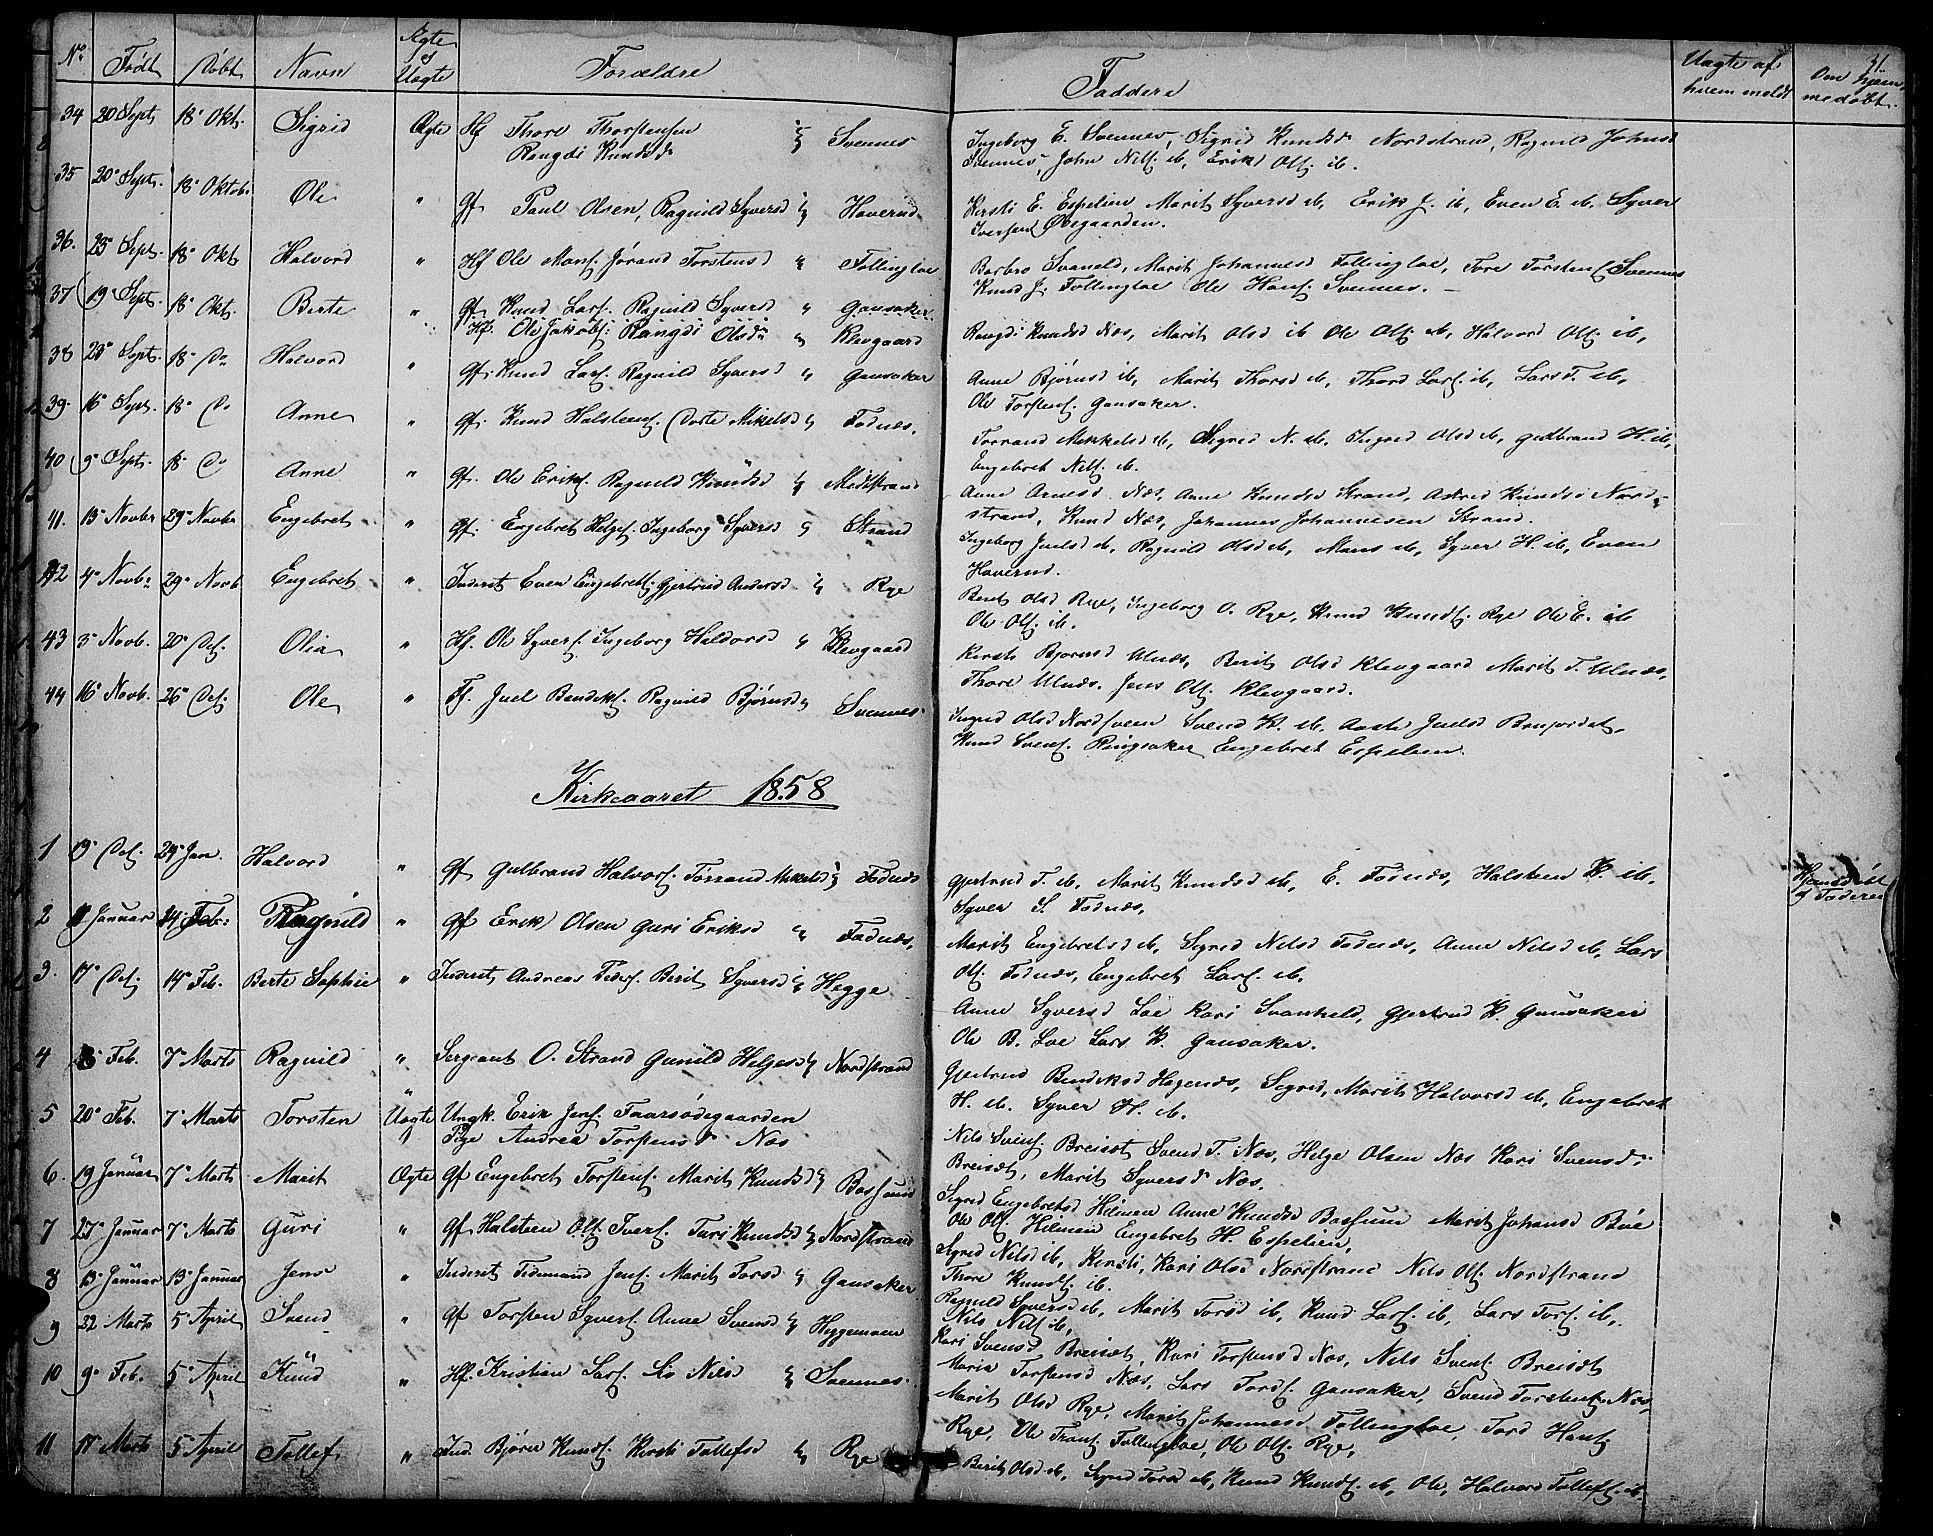 31.
No Født Døbt Navn Ægte og Uægte Forældre Faddere Uægte af hvem meldt Om hjemmedøbt.
34 20 Sept 18 Okt. Sigrid Ægte Hf Thore Thorstensen Rangdi Knudsd Svennes
Ingeborg E. Svennes, Sigrid Knudsd Nordstrand, Ragnild Johnsd
Svennes, John Nilss. ib, Erik Ols. ib.
35 20 Sept. 18 Oktob. Ole " Gf. Paul Olsen, Ragnild Syversd Haverud
Kersti E. Espelien Marit Syversd ib, Erik J. ib, Even E. ib, Syver
Iversen Øvegaarden.
36. 25 Sept. 18 Okt Halvord " Hf Ole Mons. Jørand Torstensd Follingloe
Barbro Svaneld, Marit Johannesd Follingloe, Tore Torstens. Svennes
Knud J. Follingloe Ole Hans. Svennes.
37 19 Sept. 18 Okt. Berte " Gf. Knud Lars. Ragnild Syversd " Gausaker.
Hf. Ole Jakobs. Rangdi Olsdr " Klevgaard
Rangdi Knudsd Næs, Marit Olsd ib Ole Ols. ib, Halvord Ols. ib,
38 23 Sept. 18 Do Halvord " Gf. Knud Lars. Ragnild Syversd " Gausaker
Anne Bjørnsd ib, Marit Thorsd ib, Thord Lars. ib, Lars T. ib,
Ole Torstens. Gausaker.
39. 16 Sept. 18 Do Anne " Gf. Knud Halsteens. Dorte Mikelsd Fodnæs,
Torrand Mikkelsd ib, Sigrid N. ib. Ingrid Olsd ib, Gudbrand H. ib,
Engebret Nils. ib.
40 9 Sept. 18 Do Anne " Gf. Ole Eriks. Ragnild Knudsd Midtstrand
Anne Arnesd Næs, Anne Knudsd Strand, Astrid Knudsd Nord-
strand, Knud Næs, Johannes Johannesen Strand.
41. 15 Novber 29 Novbr Engebret " Gf. Engebret Helges. Ingeborg Syversd Strand
Ingeborg Juelsd ib, Ragnild Olsd ib, Mons ib, Syver H. ib, Even
Haverud.
42 4 Novb. 29 Novb Engebret " Inderst Even Engebrets. Gjertrud Andersd Rye
Berit Olsd Rye, Ingeborg O. Rye, Knud Knuds. Rye Ole E. ib
Ole Ols. ib.
43 3 Novb. 20 Des. Olia " Hf. Ole Syvers. Ingeborg Haldorsd " Klevgaard
Kersti Bjornsd Ulnæs, Berit Olsd Klevgaard Marit T. Ulnæs,
Thore Ulnæs. Jens Ols. Klevgaard.
44 16 Novb. 26 Des. Ole " Juel Bendiks. Ragnild Bjørnsd Svennes
Ingrid Olsd Nordsveen Svend K. ib, Aaste Juelsd
Knud Svens. Ringsaker Engebret Espelien.
Kirkeaaret 1858
1 19 Des. 24 Jan. Halvord " Gf Gulbrand Halvors. Torrand Mikelsd Fodnæs
Gjertrud T. ib, Marit Knudsd ib, E. Fodnæs, Halsten K. ib.
Syver S. Fodnæs,
Hjemdøbt
2 Januar 14 Feb. Ragnild " Gf Erik Olsen Guri Eriksd " Fodnæs,
Marit Engebretsd ib, Sigrid Nilsd Fodnæs, Anne Nilsd ib, Lars
Ols. Fodnæs, Engebret Lars. ib.
3. 17 Des. 14 Feb. Berte Sophie " Inderst Andreas Peders. Berit Syversd Hegge
Anne Syversd Loe Kari Svanheld, Gjertrud K. Gausaker
Ole B. Loe Lars K. Gausaker.
4 Feb. 7 Marts Ragnild " Sergeant O. Strand Gunild Helgesd Nordstrand
Gjertrud Bendiksd Hagenæs, Sigrid, Marit Halvorsd ib, Engebret
H. ib. Syver H. ib.
5 20 Feb. 7 Marts Torsten Uægte Ungk. Erik Jens. Faarsødegaarden
Pige Andrea Torstensd Næs
Nils Svens. Breisæt Svend T. Næs, Helge Olsen Næs Kari Svensd
Breisæt, Marit Syversd Næs.
6. 19 Januar 7 Marts Marit Ægte Gf Engebret Torstens. Marit Knudsd Bassum
Sigrid Engebretsd Hilmen Anne Knudsd Bassum Marit Johansd Bøe
Ole Ols. Hilmen Engebret H. Espelien,
7 27 Januar 7 Marts Guri " Gf Halsteen Ols. Ivers. Turi Knudsd Nordstrand
Sigrid Nilsd ib, Kersti, Kari Olsd Nordstrand Nils Ols. Nordstrand
Thore Knuds. ib.
8 13 Januar 13 Januar Jens " Inderst Tidemand Jens. Marit Torsd Gausaker
Ragnild Syversd ib, Marit Torsd ib, Knud Lars. ib, Lars Tors. ib,
Nils Nils. ib,
9 22 Marts 5 April Svend " Gf Torsten Syvers. Anne Svensd Heggemoen
Kari Svensd Breisæt, Kari Torstensd Næs, Nils Svens. Breisæt
Maria Torstensd Næs, Lars Tords. Gausaker, Svend Torstens. Næs,
10 9 Feb. 5 April Knud " Hf. Kristian Lars. Liv Nilsd Svennes.
Marit Olsd Rye, Marit Johannesd Follingloe Tord Hans.
Rye, Ole Frans. Follingloe, Ole Ols. Rye,
11 17 Marts 5 April Tollef " Ind. Bjørn Knuds. Kersti Tollefsd Rye
Berit Olsd ib, Sigrid Torsd ib, Knud Knuds. ib, Ole, Halvord Tollefs. ib.